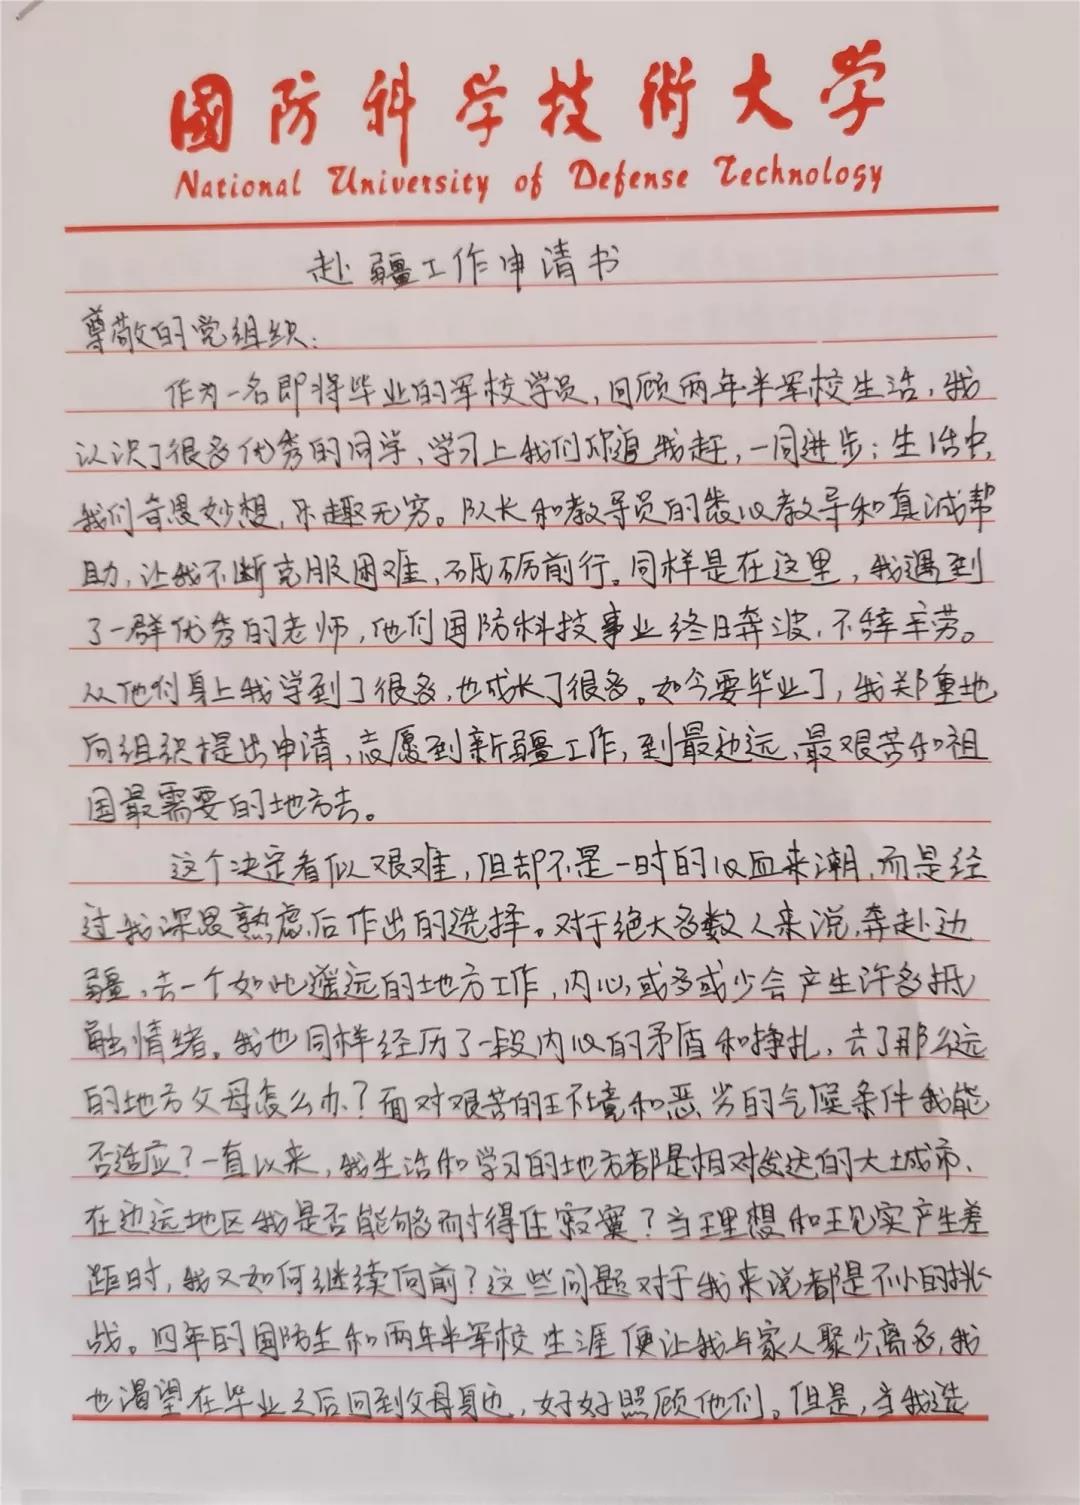 國防科学技術大学
National University of Defense Technology
赴疆工作申请书
尊敬的党组织:
作为一名即将毕业的军校学员,回顾两年半军校生活,我
认识了很多优秀的同学,学习上我们你追我赶,一同进步;生活中,
我们奇思妙想,乐趣无穷。队长和教导员的悉心教导和真诚帮
助,让我不断克服困难,砥砺前行。同样是在这里,我遇到
了一群优秀的老师,他们国防科技事业终日奔波,不辞辛劳。
从他们身上我学到了很多,也成长了很多。如今要毕业了,我郑重地
向组织提出申请,志愿到新疆工作,到最边远、最艰苦和祖
国最需要的地方去。
这个决定看似艰难,但却不是一时的心血来潮,而是经
过我深思熟虑后作出的选择。对于绝大多数人来说,奔赴边
疆,去一个如此遥远的地方工作,内心或多或少会产生许多抵
触情绪。我也同样经历了一段内心的矛盾和挣扎,去了那么远
的地方父母怎么办?面对艰苦的环境和恶劣的气候条件我能
否适应?一直以来,我生活和学习的地方都是相对发达的大城市,
在边远地区我是否能够耐得住寂寞?当理想和现实产生差
距时,我又如何继续向前?这些问题对于我来说都是不小的挑
战。四年的国防生和两年半军校生涯便让我与家人聚少离多,我
也渴望在毕业之后回到父母身边,好好照顾他们。但是,当我选